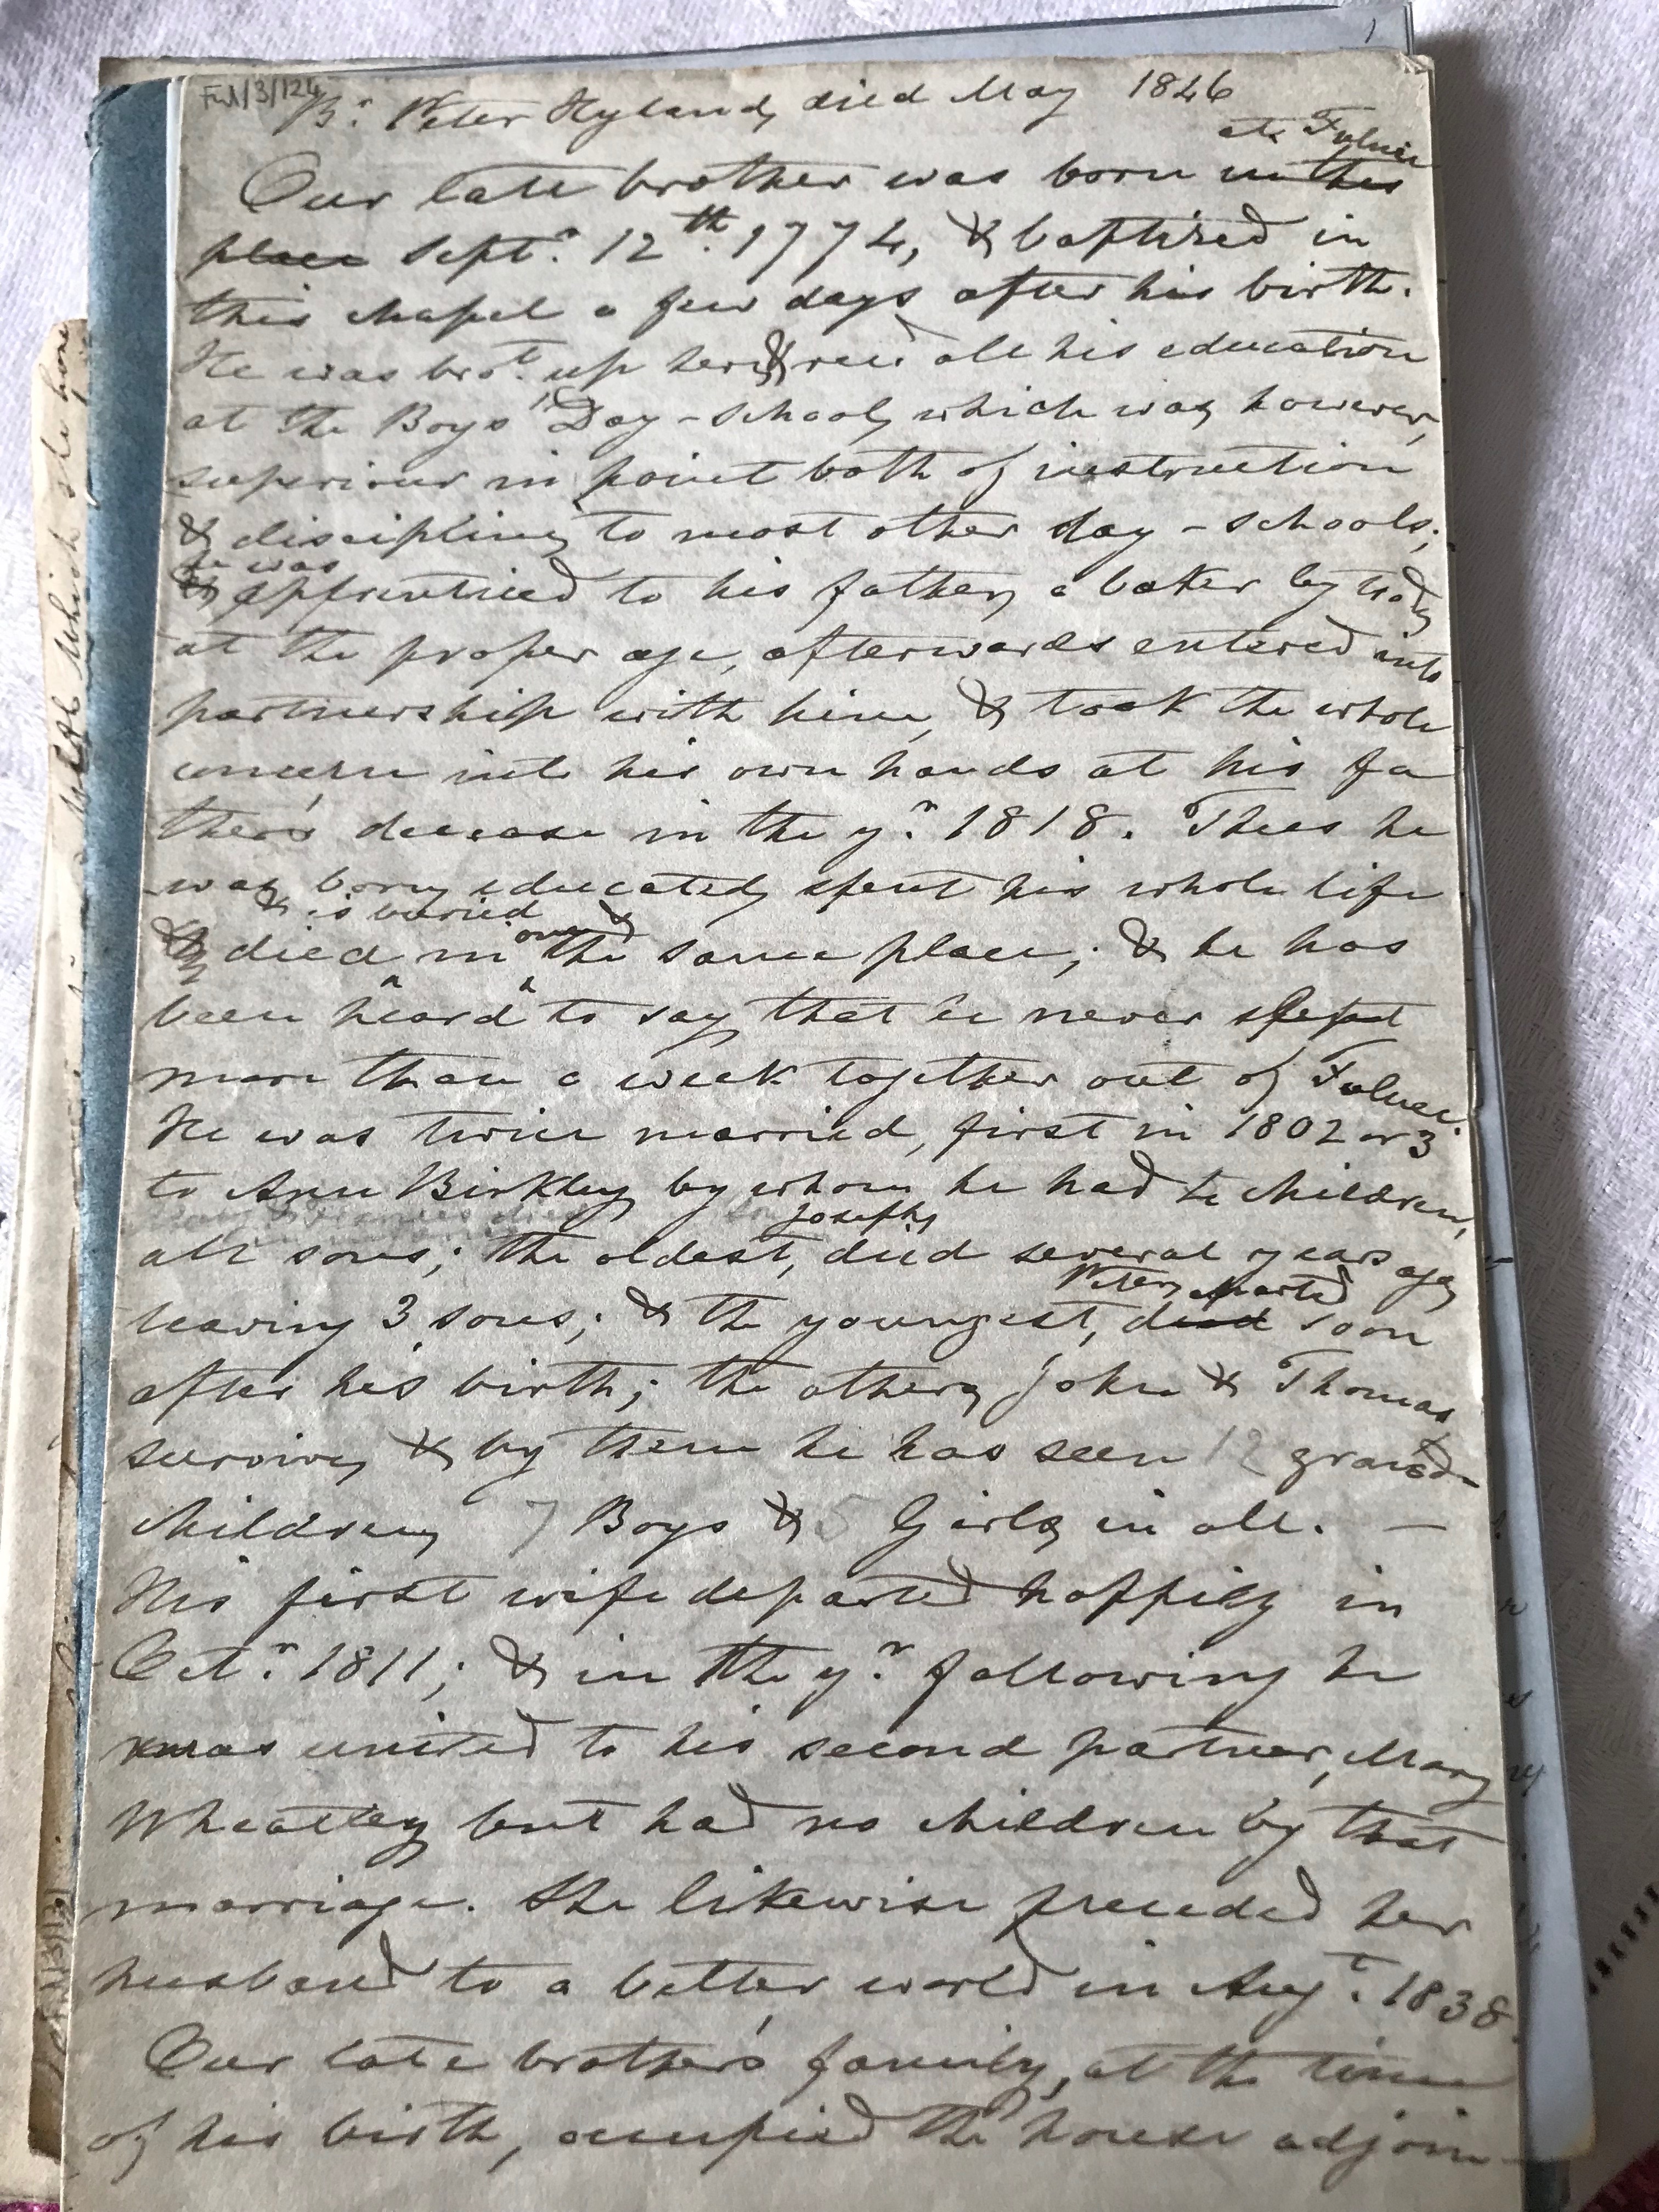 Ful/3/124
Br. Peter Hyland, died May 1846
at Fulnec
Our late brother was born in this
place Septr. 12th. 1774, & baptized in
this chapel a few days after his birth.
He was brot. up here, & recd. all his education
at the Boys' Day-school, which was, however,
superiour in point both of instruction
& discipline, to most other day-schools;
he was
& apprenticed to his father, a baker by trade,
at the proper age, afterwards entered into
partnership with him, & took the whole
concern into his own hands at his fa
ther's decease in the yr. 1818. Thus he
was born, educated, spent his whole life
& is buried
& died in one & the same place; & he has
been heard to say that he never slept
more than a week together out of Fulnec.
He was twice married, first in 1802 or 3
to Ann Birkby, by whom he had 4 children,
Joseph,
all sons; the oldest, died several years ago,
Peter, departed
leaving 3 sons; & the youngest, died soon
after his birth; the others, John & Thomas
survive, & by them he has seen 12 grand-
children, 7 Boys & 5 Girls, in all. —
His first wife departed happily in
Octr. 1811; & in the yr. following he
was united to his second partner, Mary
Wheatley, but had no children by that
marriage. She likewise preceded her
husband to a better world in Augt. 1838.
Our late brother's family, at the time
of his birth, occupied the house adjoin-
which she